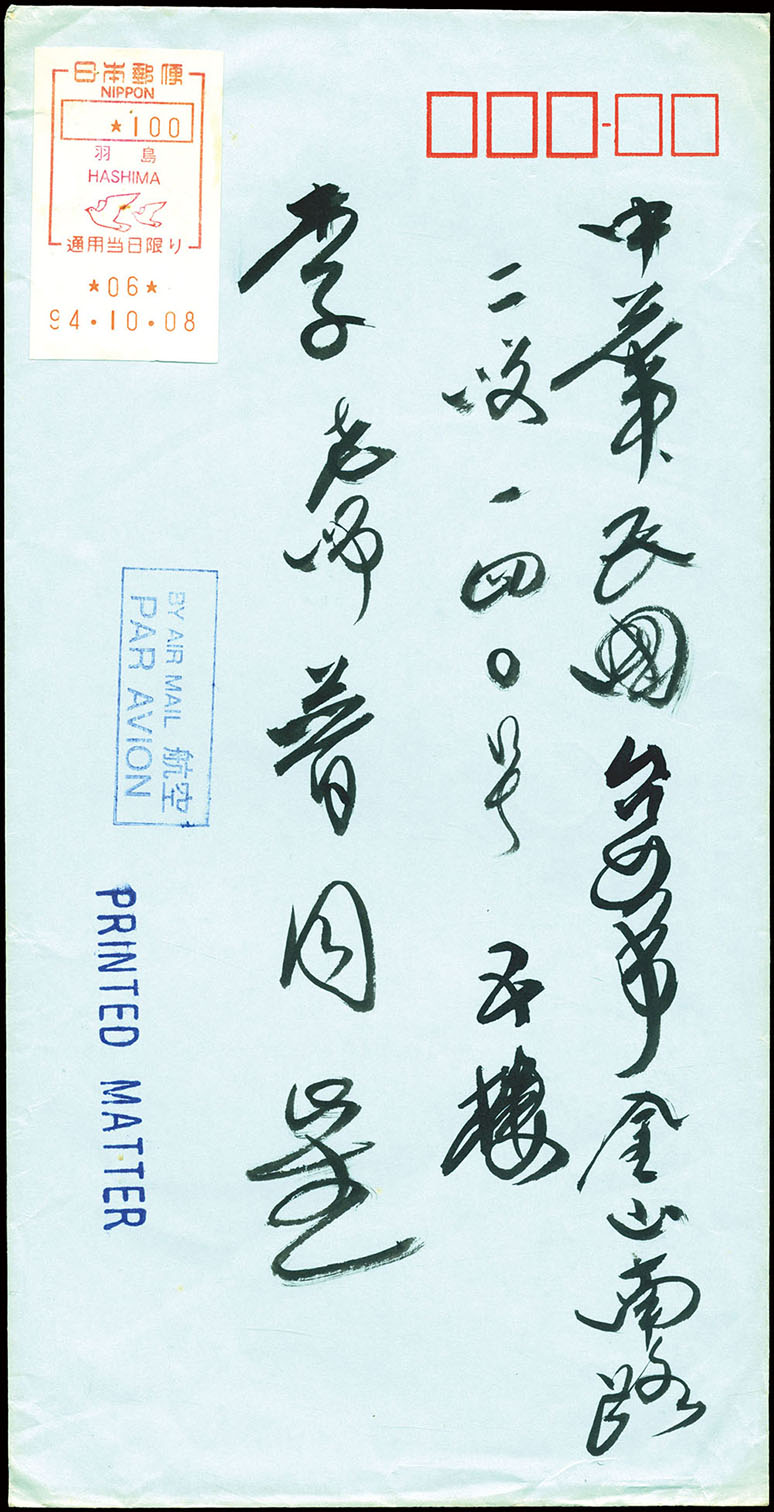 日本郵便
NIPPON
*100
羽島
HASHIMA
通用当日限り
*06*
94・10・08
中華民國台北市金山南路
二段一四〇号五樓
李老師普同
BY AIR MAIL 航空
PAR AVION
PRINTED MATTER